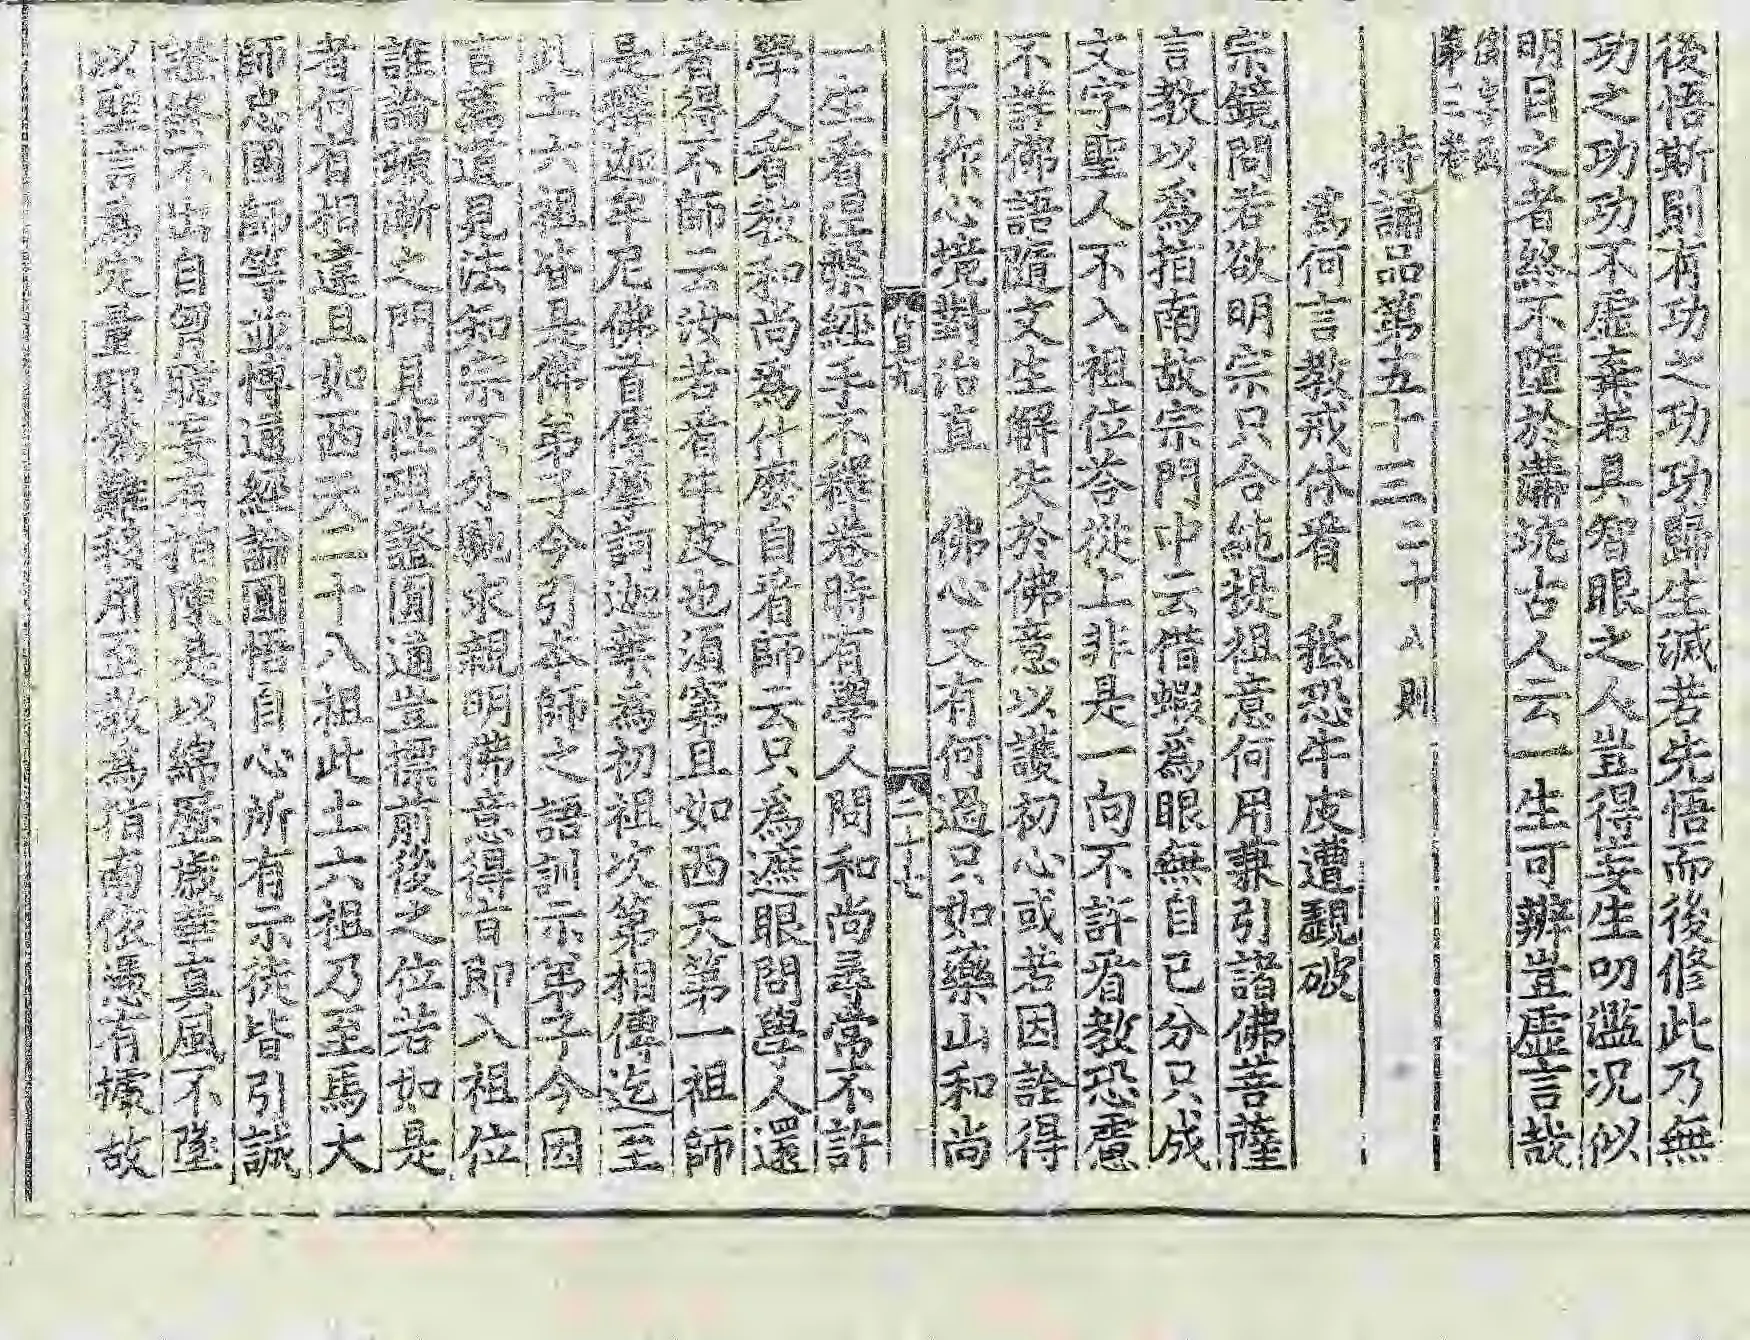 後悟斯則有功之功功歸生滅若先悟而後修此乃無
功之功功不虛棄若具智眼之人豈得妄生叨濫況似
明目之者終不墮於溝坑古人云一生可辦豈虛言哉
第三卷
持誦品第五十三二十八則
爲何言教戒休看　秖恐牛皮遭覰破
宗鏡問若欲明宗只合純提祖意何用兼引諸佛菩薩
言教以爲指南故宗門中云借蝦爲眼無自己分只成
文字聖人不入祖位荅從上非是一向不許看教恐慮
不詳佛語隨文生解失於佛意以護初心或若因詮得
旨不作心境對治直　佛心又有何過只如藥山和尚
二十七
一生看涅槃經手不釋卷時有學人問和尚尋常不許
學人看教和尚爲什麼自看師云只爲遮眼問學人還
看得不師云汝若看牛皮也須穿且如西天第一祖師
是釋迦牟尼佛首傳摩訶迦葉爲初祖次第相傳迄至
此土六祖皆是佛弟子今引本師之語訓示弟子令因
言薦道見法知宗不外馳求親明佛意得旨即入祖位
誰論頓漸之門見性現證圓通豈標前後之位若如是
者何有相違且如西天二十八祖此土六祖乃至馬大
師忠國師等並博通經論圓悟自心所有示徒皆引誠
證終不出自胷臆妄有指陳是以綿歷歲華真風不墜
以聖言爲定量邪僞難移用至教爲指南依憑有據故